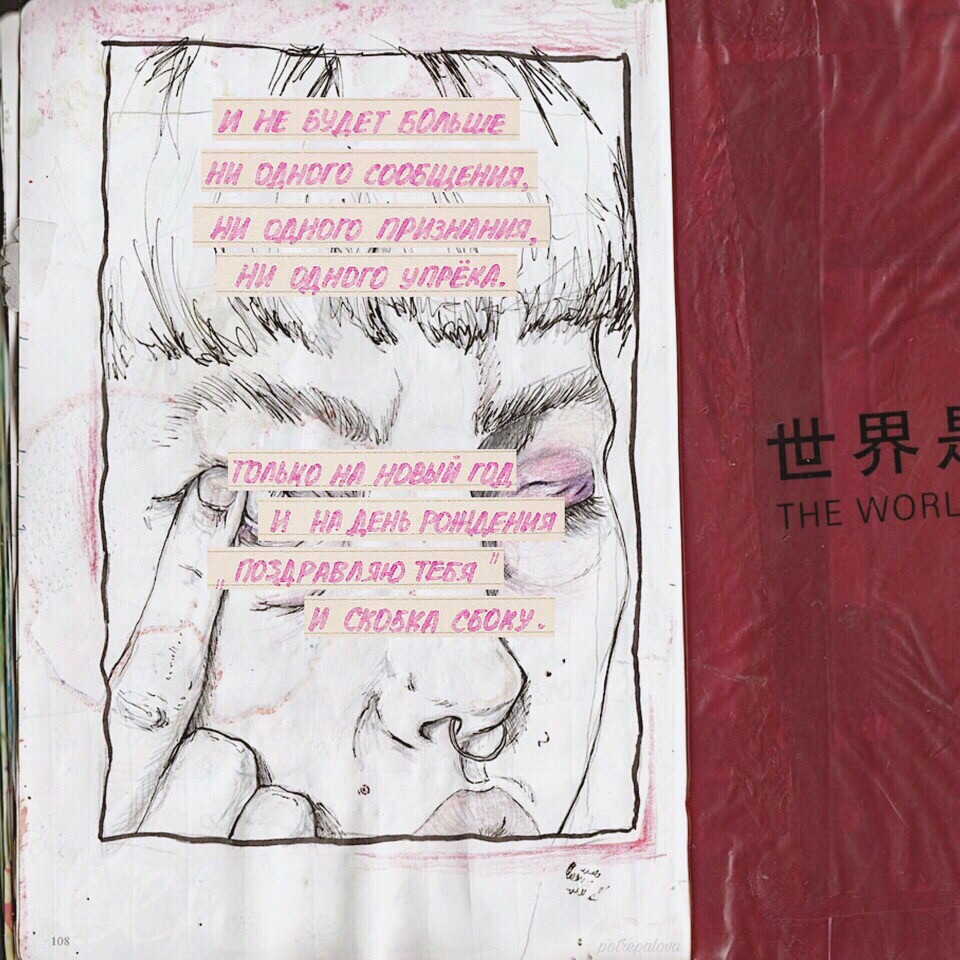 И НЕ БУДЕТ БОЛЬШЕ
НИ ОДНОГО СООБЩЕНИЯ,
НИ ОДНОГО ПРИЗНАНИЯ,
НИ ОДНОГО УПРЁКА.
ТОЛЬКО НА НОВЫЙ ГОД
И НА ДЕНЬ РОЖДЕНИЯ
„ПОЗДРАВЛЯЮ ТЕБЯ"
И СКОБКА СБОКУ.
世界是
THE WORL
108
potrepalova